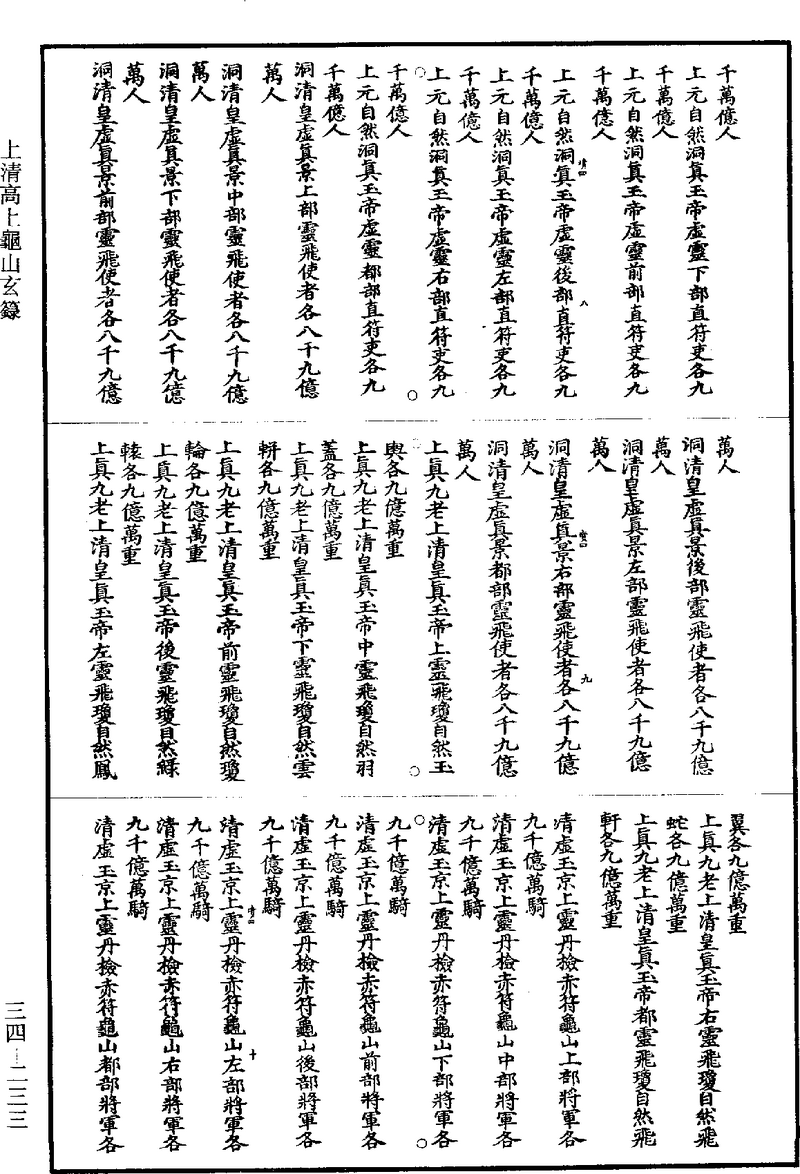 千萬億人
上元自然洞真玉帝虛靈下部直符吏各九
千萬億人
上元自然洞真玉帝虛靈前部直符吏各九
千萬億人
上元自然洞真玉帝虛靈後部直符吏各九
千萬億人
上元自然洞真玉帝虛靈左部直符吏各九
千萬億人
上元自然洞真玉帝虛靈右部直符吏各九
千萬億人
上元自然洞真玉帝虛靈都部直符吏各九
千萬億人
洞清皇虛真景上部靈飛使者各八千九億
萬人
洞清皇虛真景中部靈飛使者各八千九億
萬人
洞清皇虛真景下部靈飛使者各八千九億
萬人
洞清皇虛真景前部靈飛使者各八千九億
萬人
洞清皇虛真景後部靈飛使者各八千九億
萬人
洞清皇虛真景左部靈飛使者各八千九億
萬人
洞清皇虛真景右部靈飛使者各八千九億
萬人
洞清皇虛真景都部靈飛使者各八千九億
萬人
上真九老上清皇真玉帝上靈飛瓊自然玉
輿各九億萬重
上真九老上清皇真玉帝中靈飛瓊自然羽
蓋各九億萬重
上真九老上清皇真玉帝下靈飛瓊自然雲
輧各九億萬重
上真九老上清皇真玉帝前靈飛瓊自然瓊
輪各九億萬重
上真九老上清皇真玉帝後靈飛瓊自然綠
轅各九億萬重
上真九老上清皇真玉帝左靈飛瓊自然鳳
翼各九億萬重
上真九老上清皇真玉帝右靈飛瓊自然飛
蛇各九億萬重
上真九老上清皇真玉帝都靈飛瓊自然飛
軒各九億萬重
清虛玉京上靈丹檢赤符龜山上部將軍各
九千億萬騎
清虛玉京上靈丹檢赤符龜山中部將軍各
九千億萬騎
清虛玉京上靈丹檢赤符龜山下部將軍各
九千億萬騎
清虛玉京上靈丹檢赤符龜山前部將軍各
九千億萬騎
清虛玉京上靈丹檢赤符龜山後部將軍各
九千億萬騎
清虛玉京上靈丹檢赤符龜山左部將軍各
九千億萬騎
清虛玉京上靈丹檢赤符龜山右部將軍各
九千億萬騎
清虛玉京上靈丹檢赤符龜山都部將軍各
八
九
十
上清高上龜山玄籙
三四—二三三